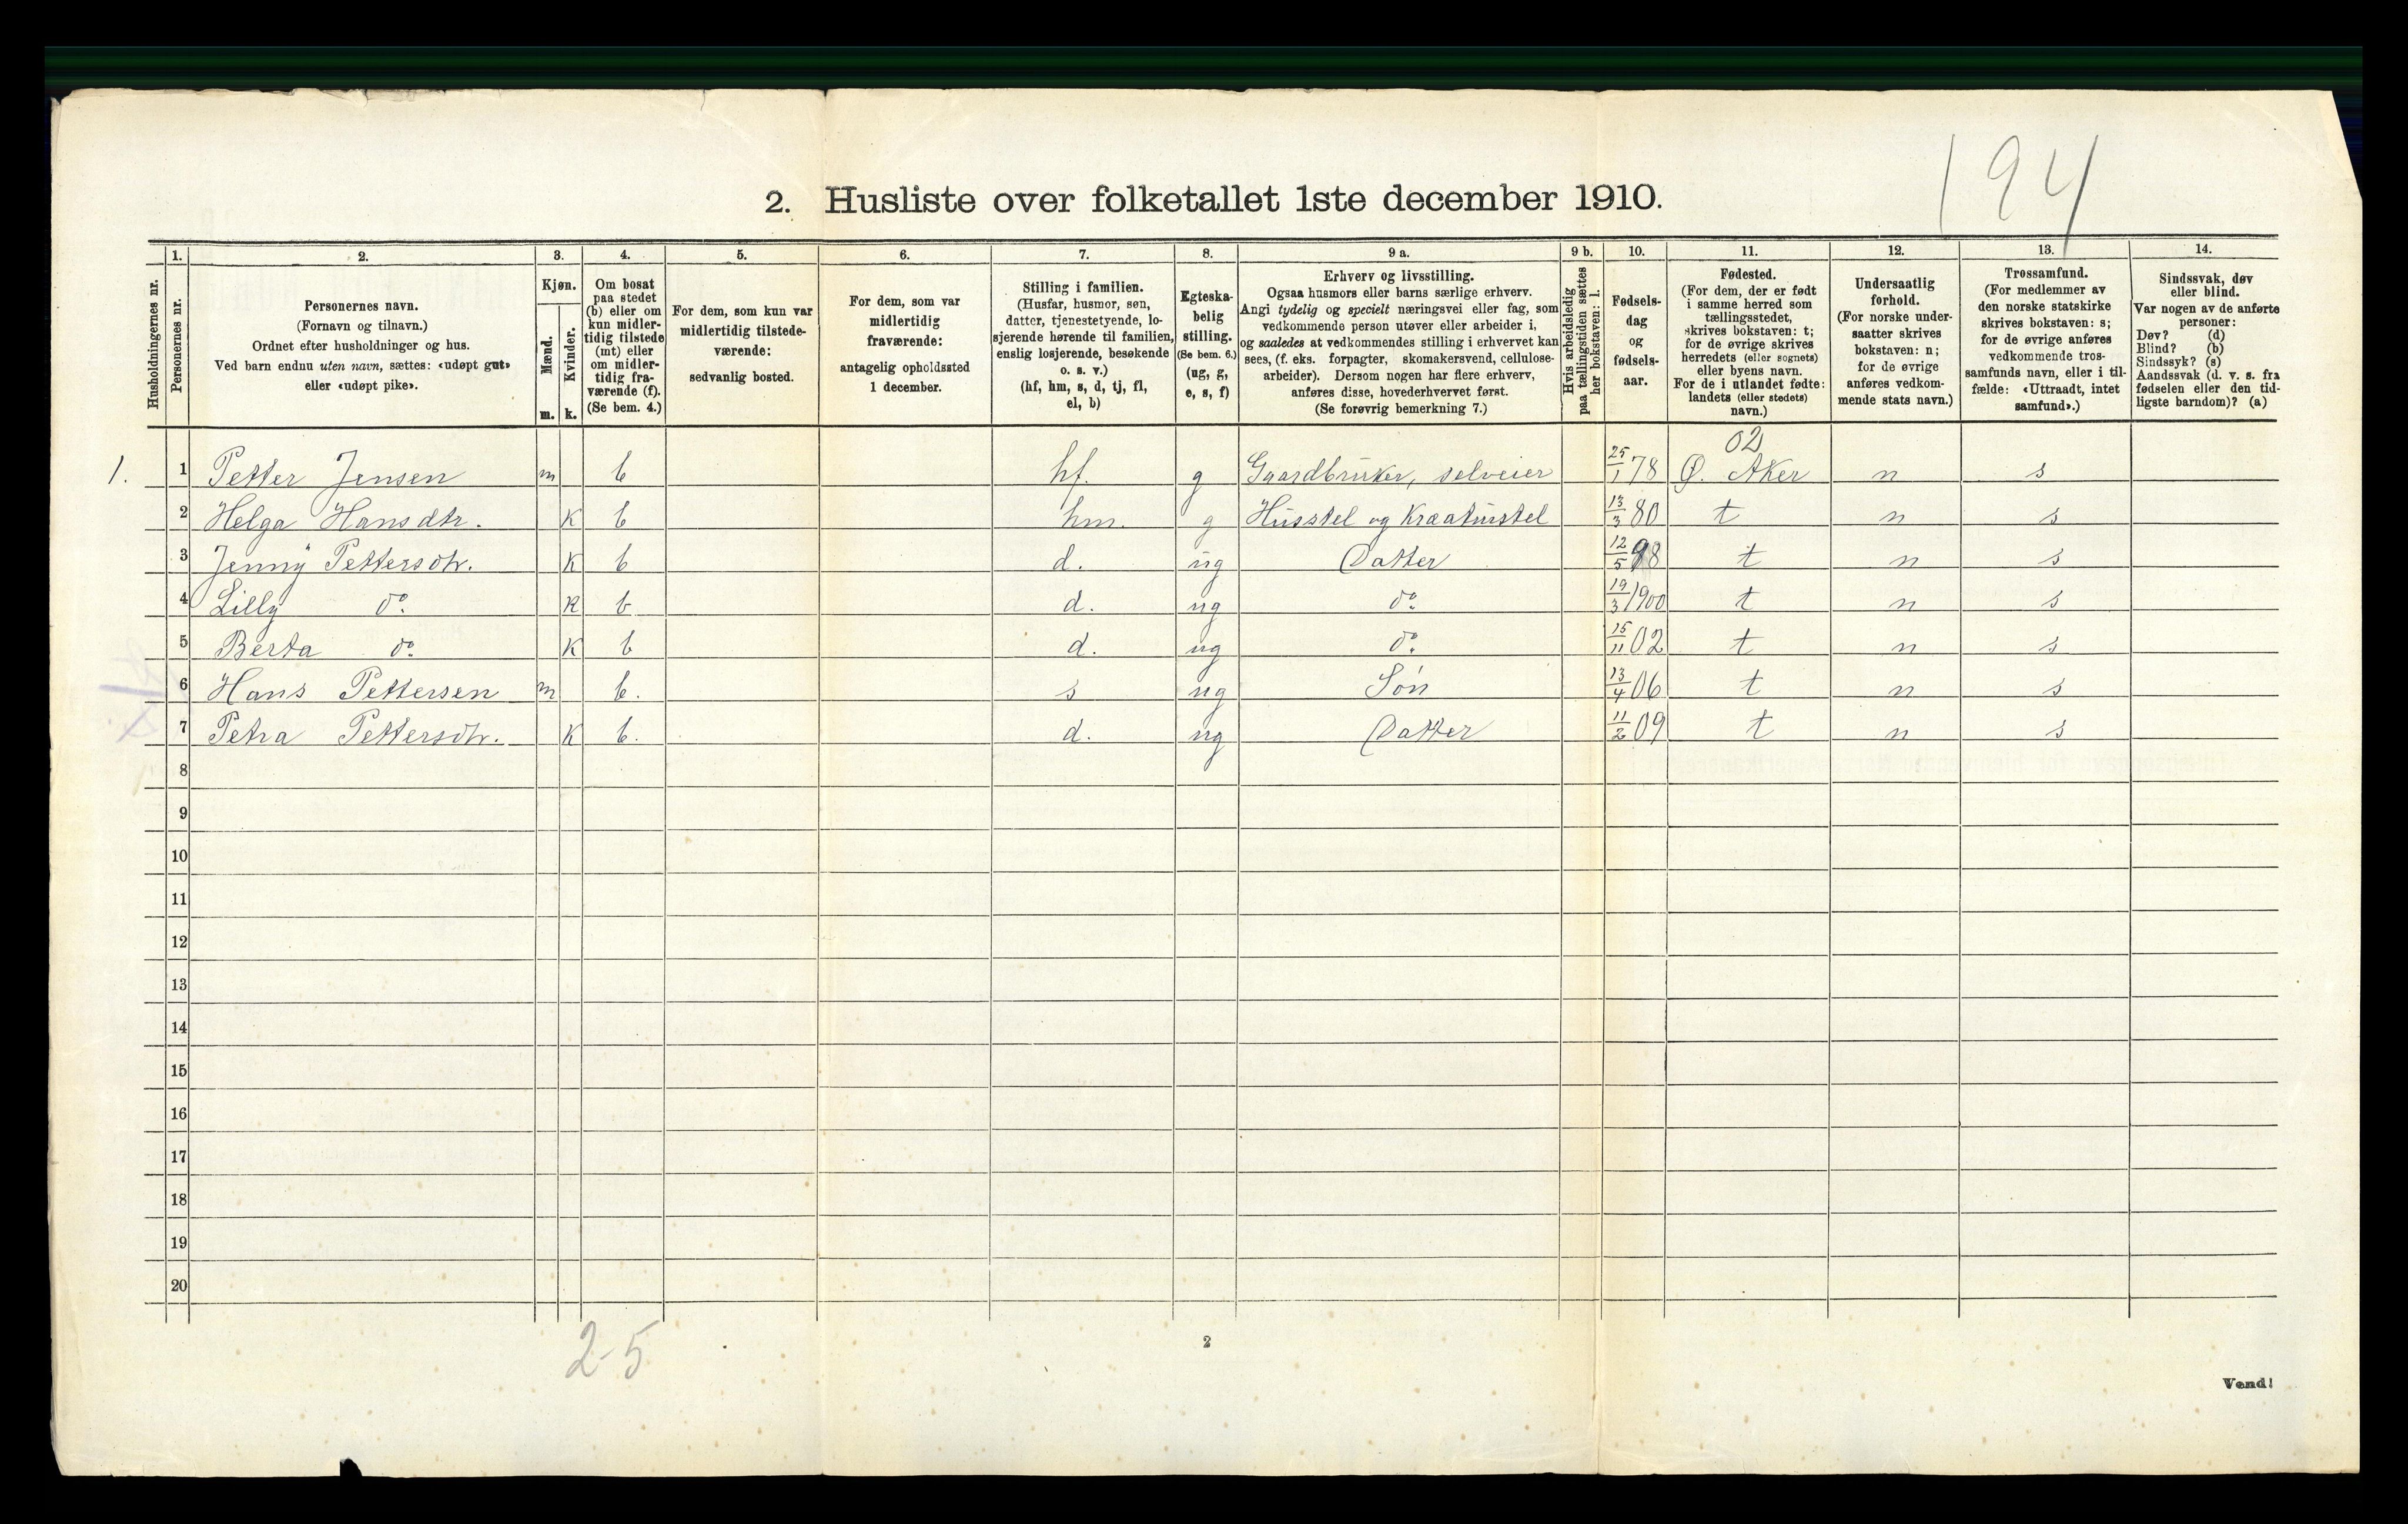 194
2. Husliste over folketallet 1ste december 1910.
Husholdningernes nr.
1. Personernes nr.
2. Personernes navn.
(Fornavn og tilnavn.)
Ordnet efter husholdninger og hus.
Ved barn endnu uten navn, sættes: «udøpt gut»
eller «udøpt pike».
3. Kjøn.
Mænd. m.
Kvinder. k.
4. Om bosat
paa stedet
(b) eller om
kun midler-
tidig tilstede
(mt) eller
om midler-
tidig fra-
værende (f).
(Se bem. 4.)
5. For dem, som kun var
midlertidig tilstede-
værende:
sedvanlig bosted.
6. For dem, som var
midlertidig
fraværende:
antagelig opholdssted
1 december.
7. Stilling i familien.
(Husfar, husmor, søn,
datter, tjenestetyende, lo-
sjerende hørende til familien,
enslig losjerende, besøkende
o. s. v.)
(hf, hm, s, d, tj, fl,
el, b)
8. Egteska-
belig
stilling.
(Se bem. 6.)
(ug, g,
e, s, f)
9 a. Erhverv og livsstilling.
Ogsaa husmors eller barns særlige erhverv.
Angi tydelig og specielt næringsvei eller fag, som
vedkommende person utøver eller arbeider i,
og saaledes at vedkommendes stilling i erhvervet kan
sees, (f. eks. forpagter, skomakersvend, cellulose-
arbeider). Dersom nogen har flere erhverv,
anføres disse, hovederhvervet først.
(Se forøvrig bemerkning 7.)
9 b. Hvis arbeidsledig
paa tællingstiden sættes
her bokstaven: l.
10. Fødsels-
dag
og
fødsels-
aar.
11. Fødested.
(For dem, der er født
i samme herred som
tællingsstedet,
skrives bokstaven: t;
for de øvrige skrives
herredets (eller sognets)
eller byens navn.
For de i utlandet fødte:
landets (eller stedets)
navn.)
12. Undersaatlig
forhold.
(For norske under-
saatter skrives
bokstaven: n;
for de øvrige
anføres vedkom-
mende stats navn.)
13. Trossamfund.
(For medlemmer av
den norske statskirke
skrives bokstaven: s;
for de øvrige anføres
vedkommende tros-
samfunds navn, eller i til-
fælde: «Uttraadt, intet
samfund».)
14. Sindssvak, døv
eller blind.
Var nogen av de anførte
personer:
Døv? (d)
Blind? (b)
Sindssyk? (s)
Aandssvak (d. v. s. fra
fødselen eller den tid-
ligste barndom)? (a)
02
1. 1 Petter Jensen m b hf. g Gaardbruker, selveier 25/1 78 Ø. Aker n s
2 Helga Hansdtr. k b hm. g Husstel og Kreaturstel 13/3 80 t n s
3 Jenny Pettersdtr. k b d. ug Datter 12/5 98 t n s
4 Lilly do. k b d. ug do. 19/3 1900 t n s
5 Berta do. k b d. ug do. 15/11 02 t n s
6 Hans Pettersen m b. s ug Søn 13/4 06 t n s
7 Petra Pettersdtr. k b. d. ug Datter 11/2 09 t n s
8
9
10
11
12
13
14
15
16
17
18
19
20
2-5
2
Vend!